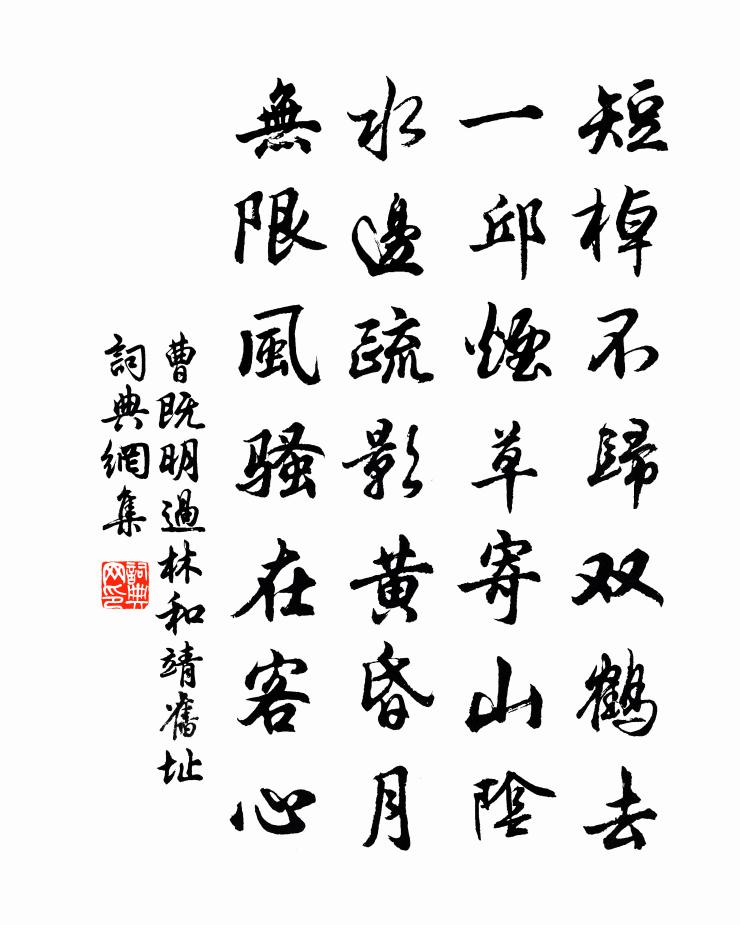 短棹不歸双鶴去
一邱煙草寄山陰
水邊疏影黄昏月
無限風騷在客心
曹既明過林和靖舊址
詞典網集
詞典网印